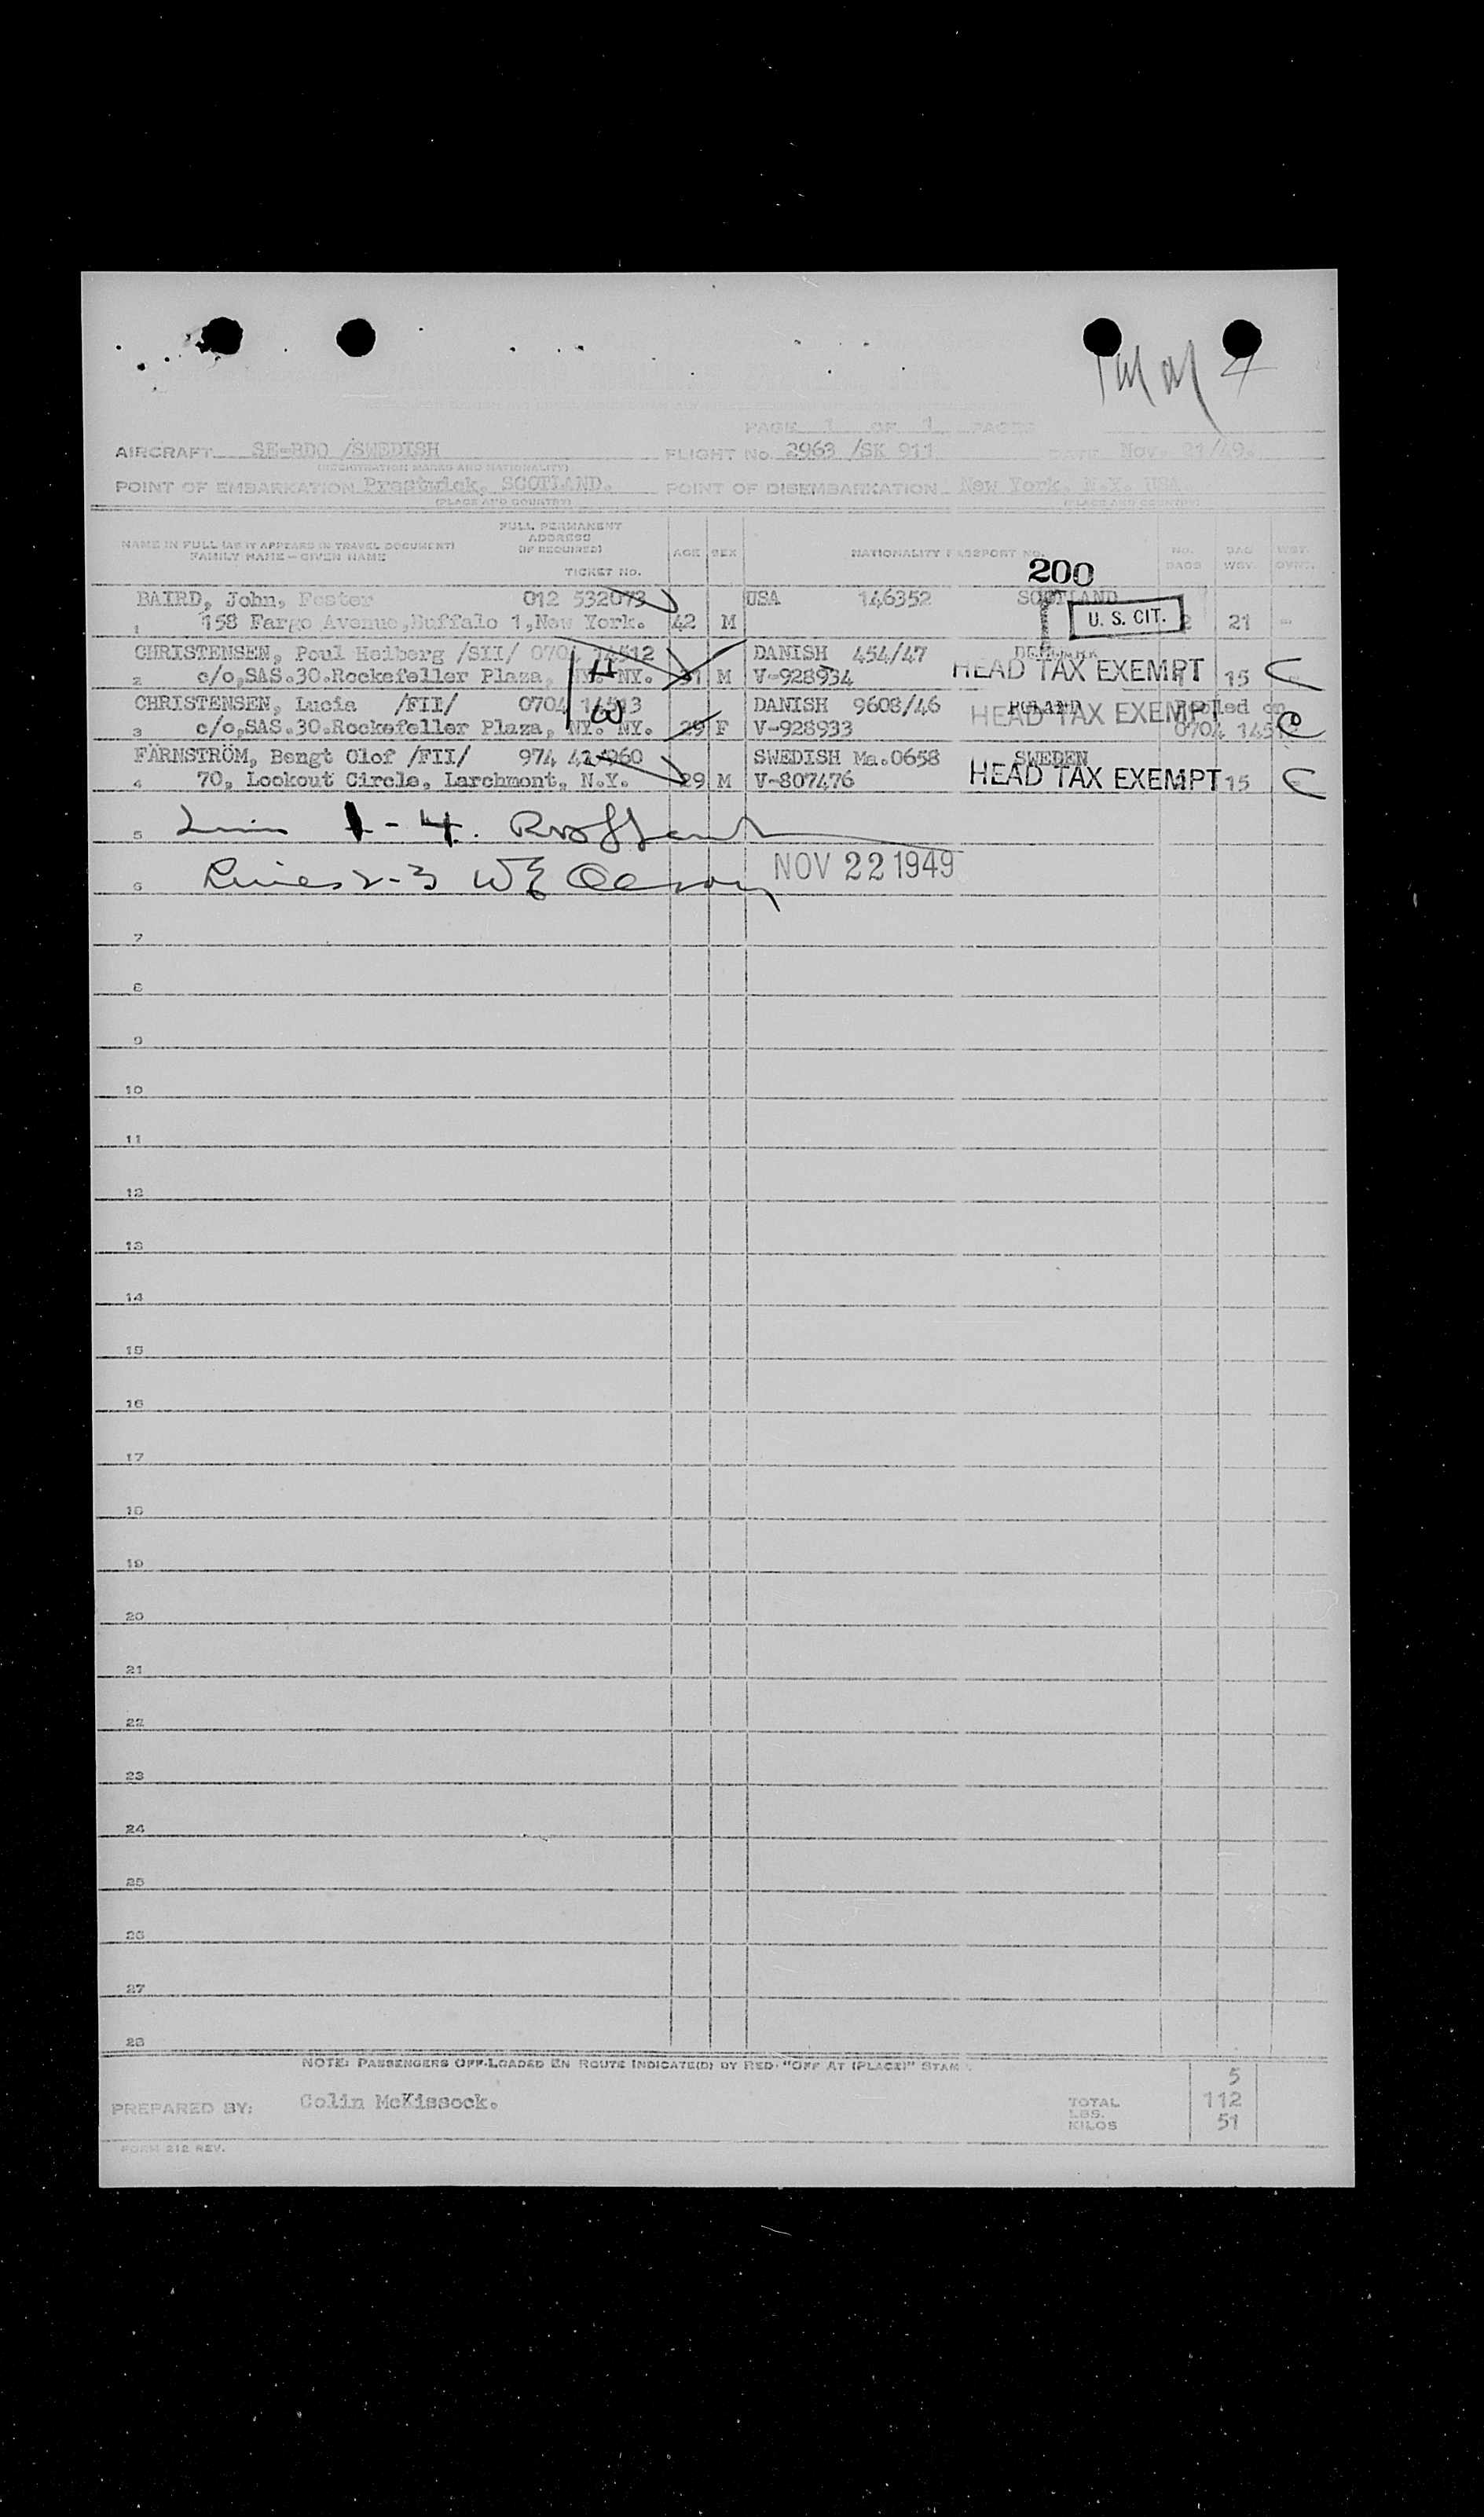 May 4
PAGE 1 OF 1 PAGES
AIRCRAFT SE-BDO /SWEDISH FLIGHT No. 2963 /SK 911 DATE Nov. 21/49.
(REGISTRATION MARKS AND NATIONALITY)
POINT OF EMBARKATION Prestwick, SCOTLAND. POINT OF DISEMBARKATION New York. N.Y. USA.
(PLACE AND COUNTRY) (PLACE AND COUNTRY)
NAME IN FULL (AS IT APPEARS IN TRAVEL DOCUMENT) FAMILY NAME – GIVEN NAME
FULL PERMANENT ADDRESS (IF REQUIRED)
TICKET NO.
AGE SEX NATIONALITY PASSPORT NO. NO. BAGS BAG WGT.
200
BAIRD, John, Foster 012 532073 USA 146352 SCOTLAND
1 158 Fargo Avenue, Buffalo 1, New York. 42 M U. S. CIT. 2 21 -
CHRISTENSEN, Poul Heiberg /SII/ 0704 14512 DANISH 454/47 DENMARK
2 c/o,SAS.30.Rockefeller Plaza, NY. NY. 31 M V-928934 HEAD TAX EXEMPT 15
H
CHRISTENSEN, Lucia /FII/ 0704 14513 DANISH 9608/46 POLAND Pooled on
3 c/o,SAS.30.Rockefeller Plaza, NY. NY. 29 F V-928933 HEAD TAX EXEMPT 0704
W
FÄRNSTRÖM, Bengt Olof /FII/ 974 SWEDISH Ma.0658 SWEDEN
4 70, Lookout Circle, Larchmont, N.Y. 29 M V-807476 HEAD TAX EXEMPT 15
5 1-4.
6 Lines 2-3 NOV 22 1949
7
8
9
10
11
12
13
14
15
16
17
18
19
20
21
22
23
24
25
26
27
28
NOTE: PASSENGERS OFF-LOADED EN ROUTE INDICATE(D) BY RED "OFF AT (PLACE)" STAMP.
5
PREPARED BY: Colin McKissock. TOTAL LBS. 112
KILOS 51
FORM 212 REV.